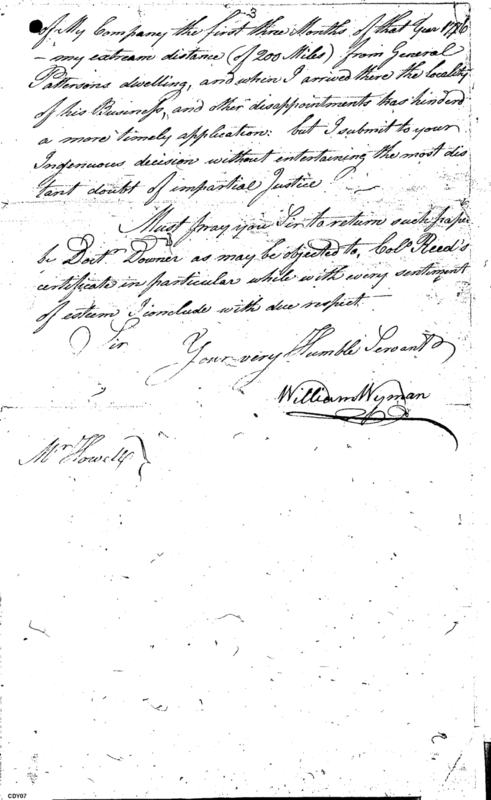 3
of My Company the first three Months of that Year 1776
- my extream distance (of 200 Miles) from General
Pattersons dwelling, and when I arrived there the locality
of his Business, and other disappointments has hinderd
a more timely application: but I submit to your
Ingenuous decision without entertaining the most dis
tant doubt of impartial Justice
Must pray you Sir to return such
by Doctr Downer as may be objected to, Colo Reed's
certificate in particular while with every sentiment
of esteem I conclude with due respect.
Sir Your very Humble Servant
William Wyman
Mr Howell
CDY07